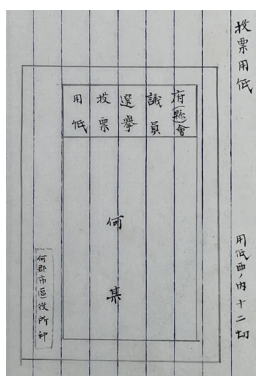 投票用低
用低西ノ内十二切
府(縣)會
議員
選擧
投票
用低
何某
何郡市區役所印